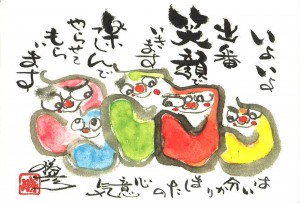 いよいよ
出番
笑顔で
いきます
楽しんで
やらせてもら
います
はい分かりましたの心意気